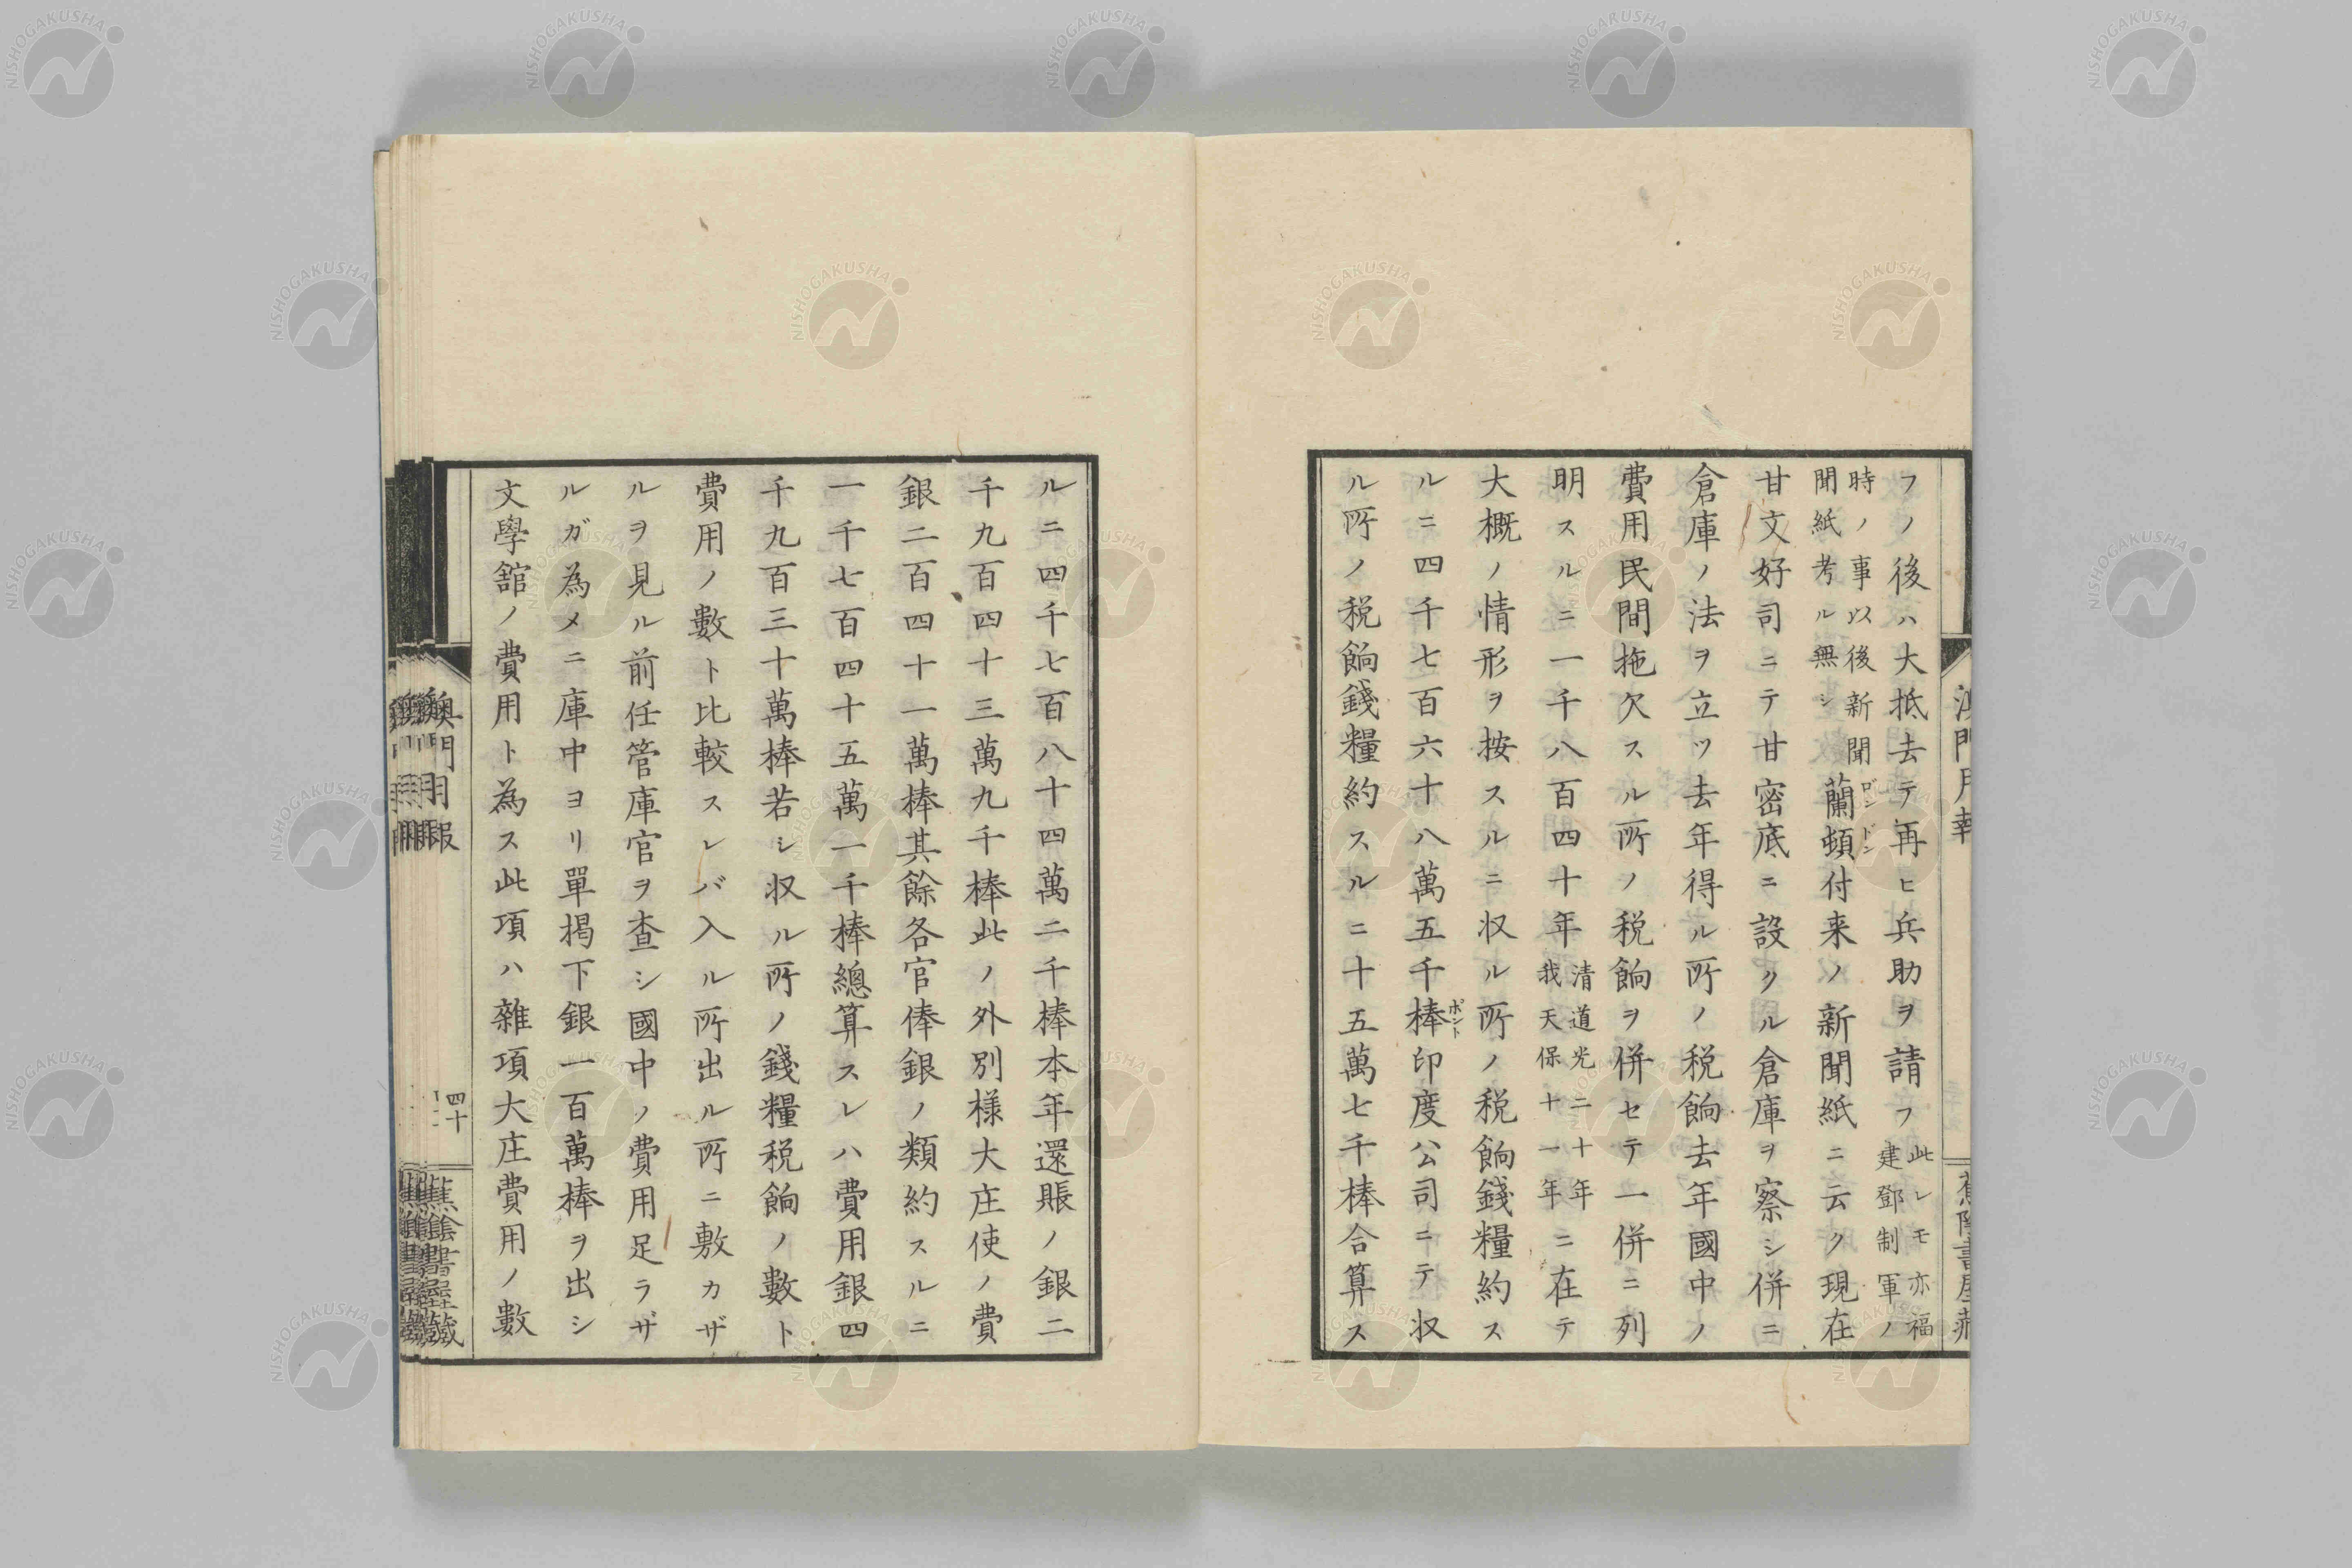 フノ後ハ大抵去テ再ヒ兵助ヲ請フ此レモ亦福建鄧制軍ノ
時ノ事以後新聞聞紙考ル無シ蘭頓付来ノ新聞紙ニ云ク現在
ロンドン
甘文好司ニテ甘密底ニ設クル倉庫ヲ察シ併ニ
倉庫ノ法ヲ立ツ去年得ル所ノ税餉去年國中ノ
費用民間拖欠スル所ノ税餉ヲ併セテ一併ニ列
明スルニ一千八百四十年清道光二十年我天保十一年ニ在テ
大概ノ情形ヲ按スルニ収ル所ノ税餉錢糧約ス
ルニ四千七百六十八萬五千棒印度公司ニテ収
ポント
ル所ノ税餉錢糧約スルニ十五萬七千棒合算ス
ルニ四千七百八十四萬二千棒本年還賬ノ銀二
千九百四十三萬九千棒此ノ外別様大庄使ノ費
銀二百四十一萬棒其餘各官俸銀ノ類約スルニ
一千七百四十五萬一千棒總算スレハ費用銀四
千九百三十萬棒若シ収ル所ノ錢糧税餉ノ數ト
費用ノ數ト比較スレバ入ル所出ル所ニ敷カザ
ルヲ見ル前任管庫官ヲ查シ國中ノ費用足ラザ
ルガ為メニ庫中ヨリ單掲下銀一百萬棒ヲ出シ
文學舘ノ費用ト為ス此項ハ雜項大庄費用ノ數
四十